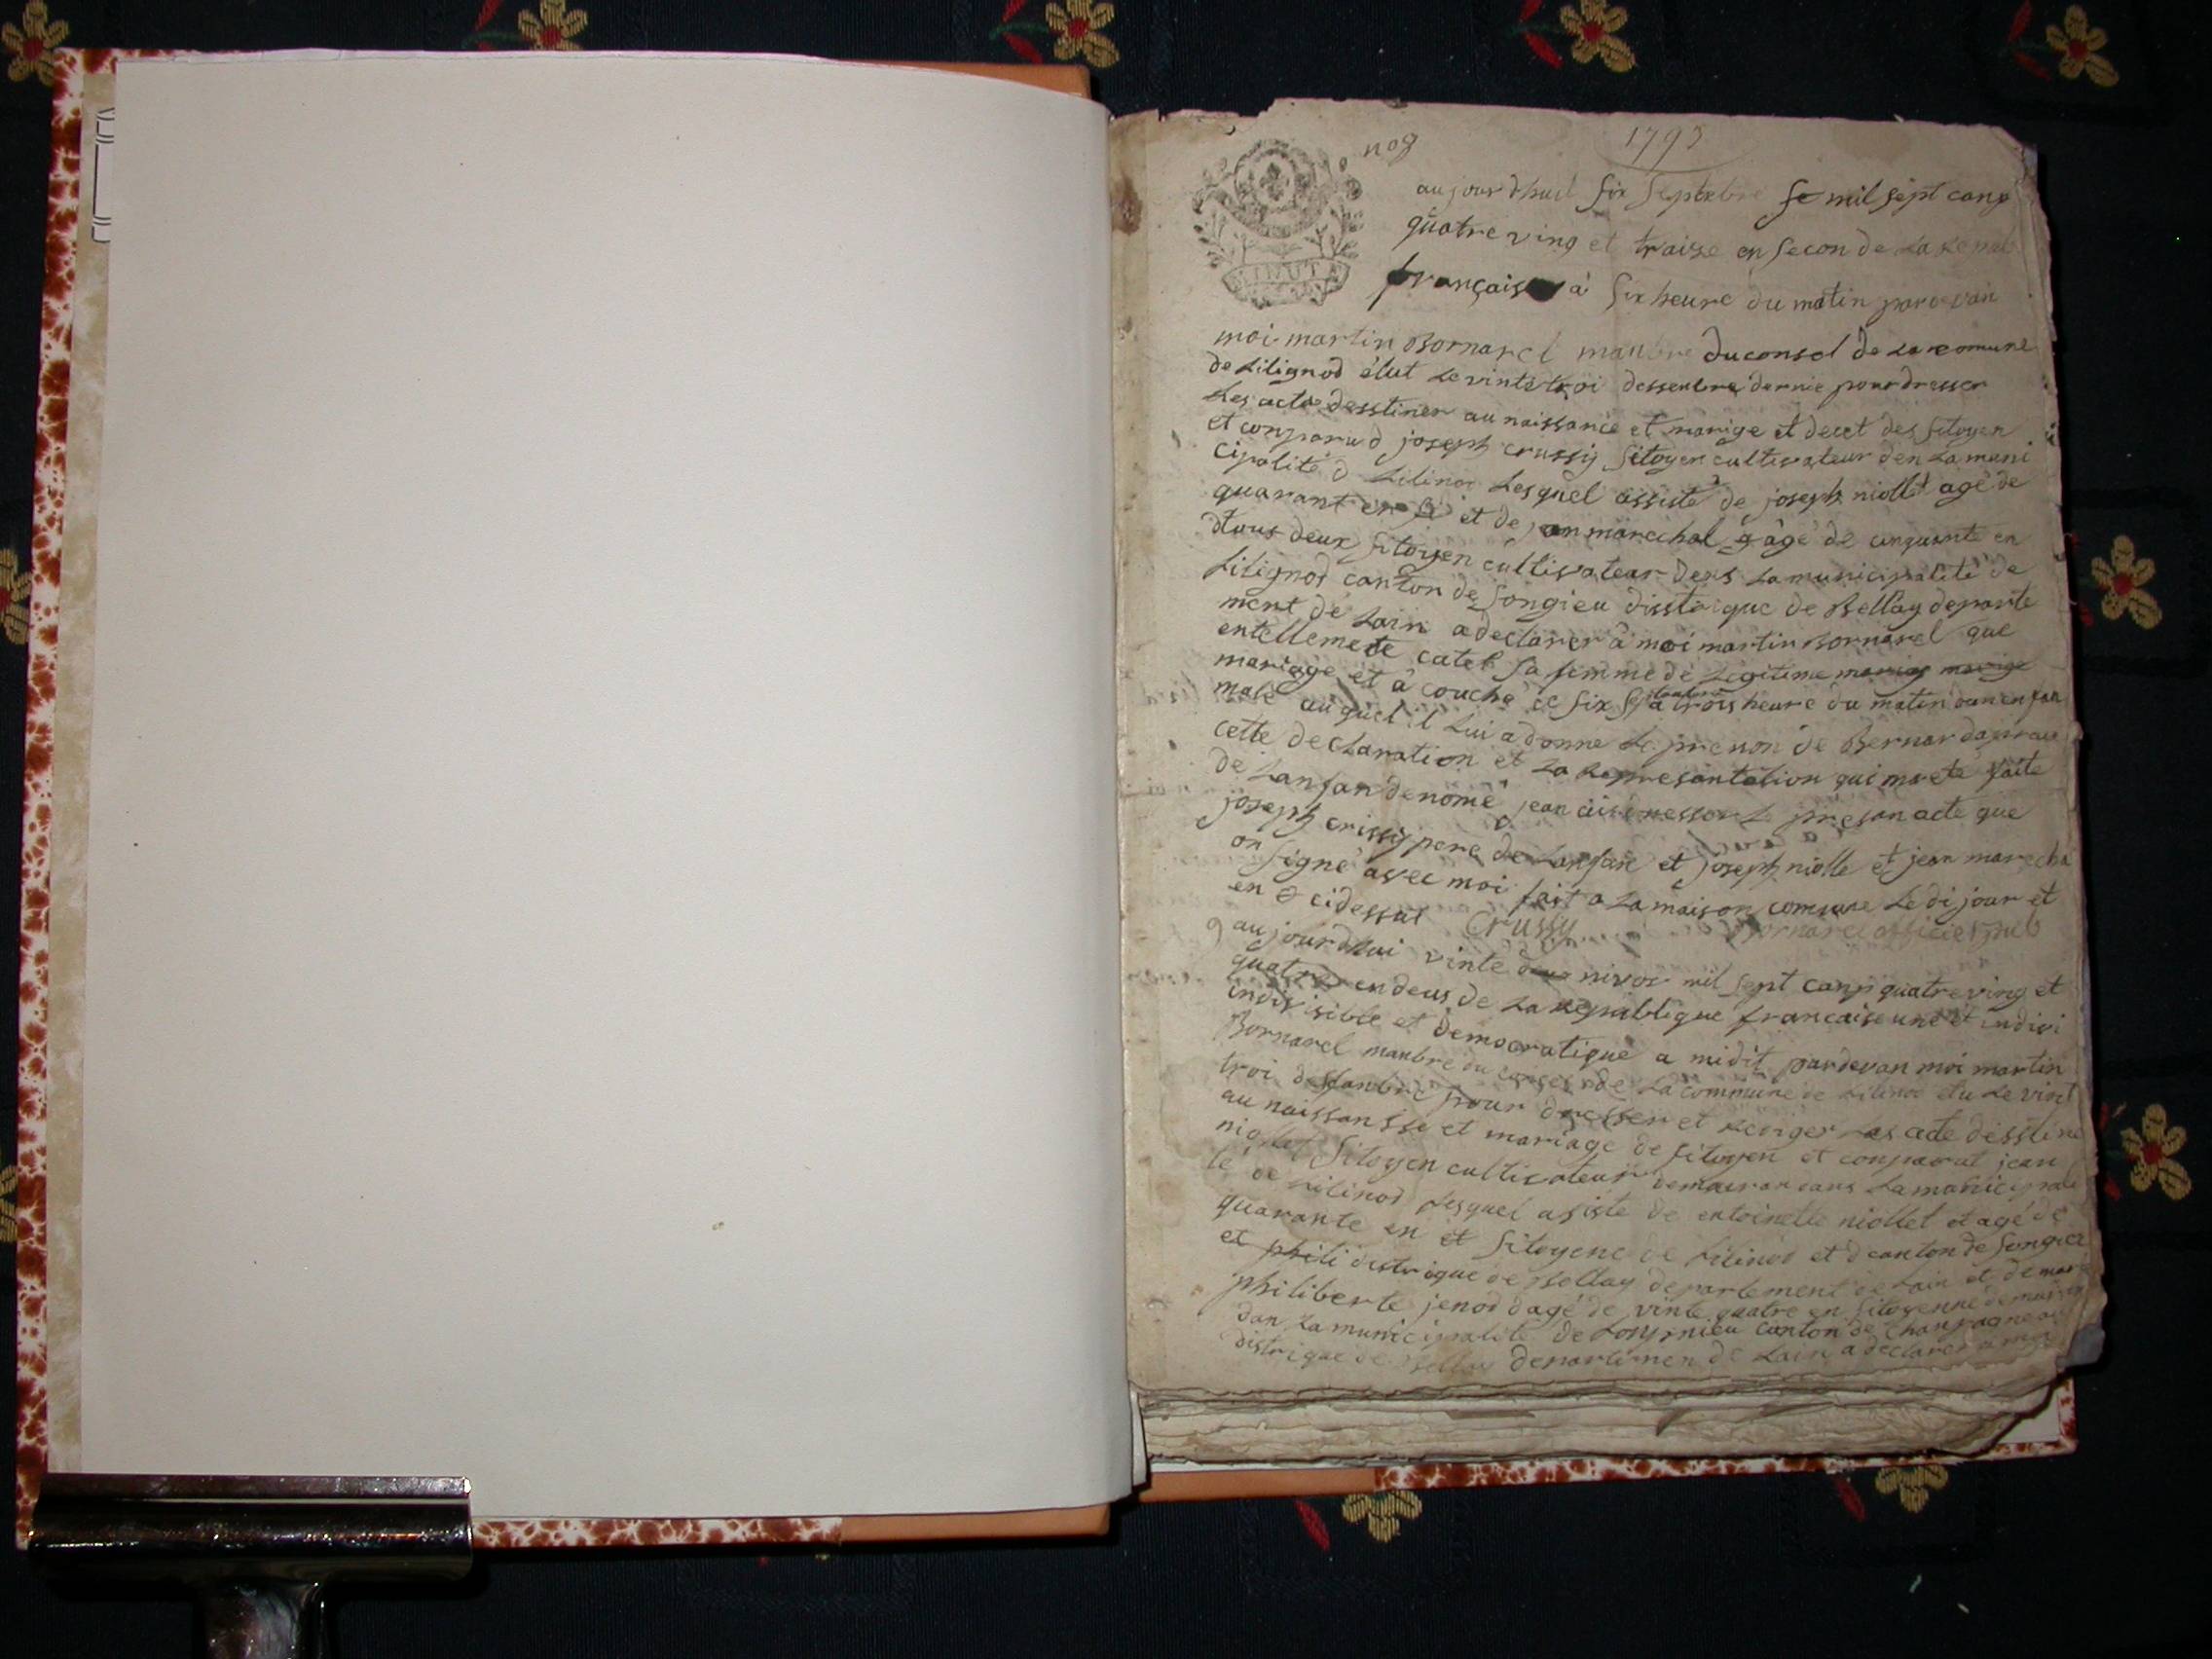 1793
aujourdhuit six septebre se mil sept canp
quatre ving et traize en secon de la
française à six heure du matin pardevan
moi martin Bornarel manbre du consel de la comune
de Lilignod élut le vinte troi dessenbre dernié pour dresser
les acte desstiner au naissance et marige et decet des sitoyen
et conparu d joseph crussij sitoyen cultivateur den la muni
cipalité d Lilinod lesquel assisté de joseph niollet agé de
quarant en et de jan marechal agé de cinquante en
tous deux sitoyen cultivateur dens la municipalité de
Lilignod canton de songieu disstrique de Bellay departe
ment de Lain a declarer à moi martin Bornarel que
entelleme catel sa femme de legitime mariag marige
mariage et à couché le six a trois heure du matin dun enfan
male auquel il lui a donné le prenon de Bernard
cette declaration et la representation qui ma eté faite
de lanfan denomé jean presan acte que
joseph crissij pere de lanfan et joseph niolle et jean marecha
on signé avec moi fait a la maison comune le di jour et
en cidessut Crussy Bornarel officié pub
9 aujourdhui vinte nivos mil sept canp quatre ving et
quatre en deus de la republique francaise une et indivi
indivisible et democratique a midit pardevan moi martin
Bornarel manbre du la commune de Lilinod elu le vint
troi dessanbre pour dresser et rediger les acte desstine
au naissansse et mariage de sitoyen et conparut jean
niollet sitoyen cultivateur demauran dans la municipali
té de Lilinod lesquel asisté de entoinette niollet et agé de
quarante en et sitoyene de Lilinod et d canton de songieu
et phili distrique de Bellay departement de Lain et de
philiberte jenod dagé de vinte quatre en sitoyenne
dan la municipalité de canton de Chanpagne
distrique de Bellay departemen de Lain a declarer a moi